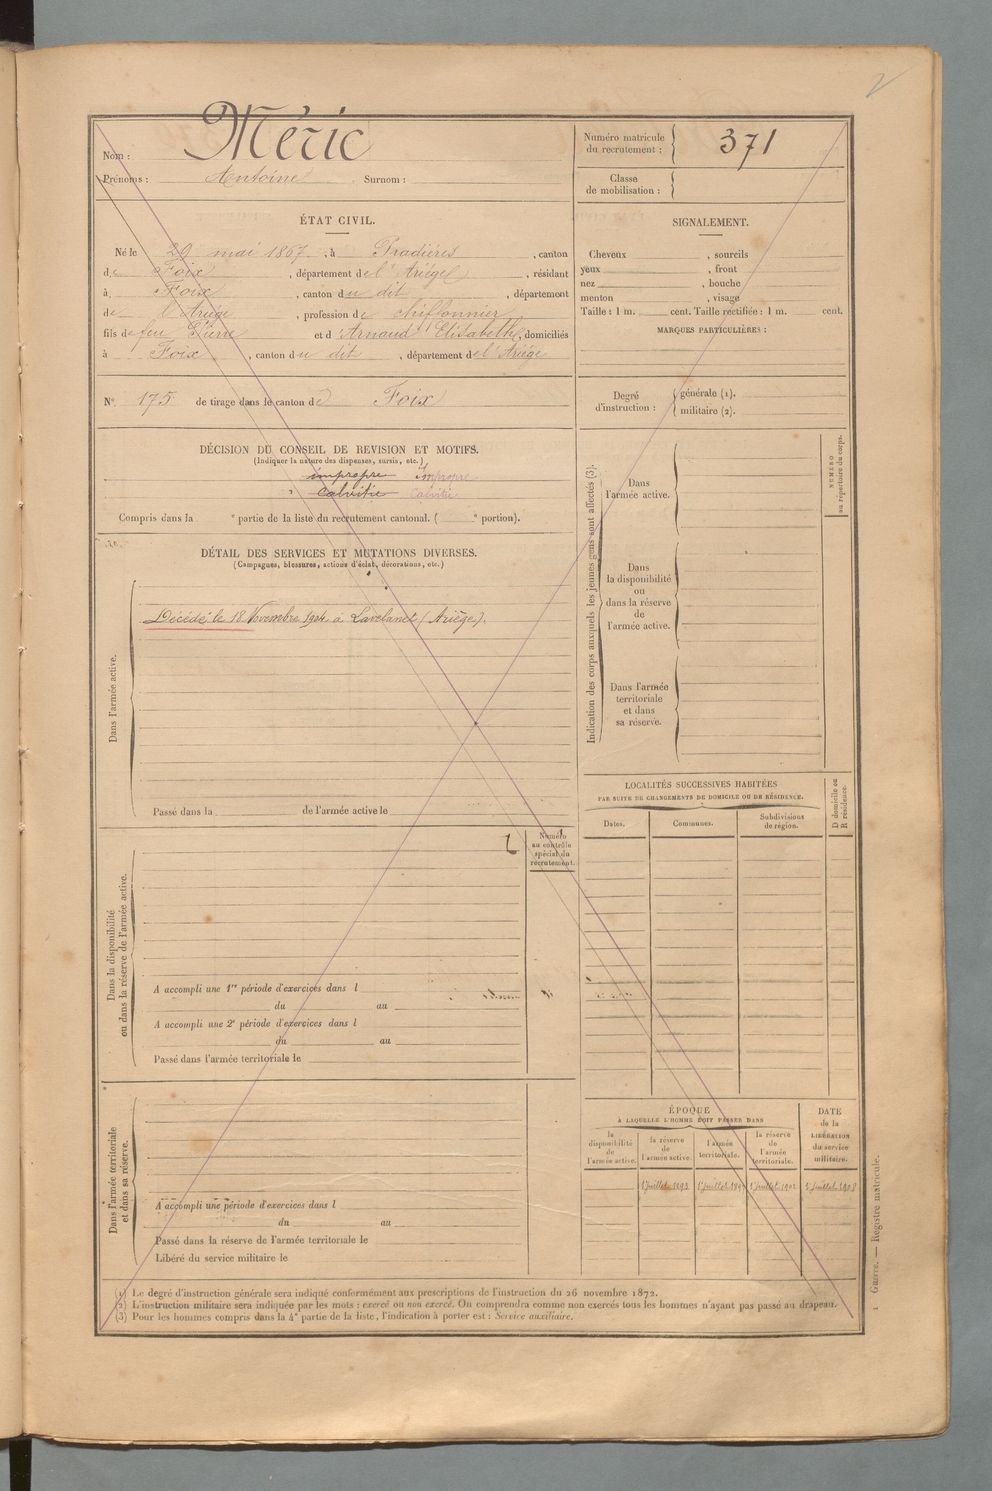 2
Nom : Méric
Prénoms : Antoine Surnom :
Numéro matricule
du recrutement : 371
Classe
de mobilisation :
ÉTAT CIVIL.
Né le 29 mai 1867, à Pradières, canton
de Foix, département de l'Ariège, résidant
à Foix, canton du dit, département
de l'Ariège, profession de chiffonnier
fils de feu Pierre et d'Arnaud Elisabeth, domiciliés
à Foix, canton du dit, département de l'Ariège
SIGNALEMENT.
Cheveux , sourcils
yeux , front
nez , bouche
menton , visage
Taille : 1 m. cent. Taille rectifiée : 1 m. cent.
MARQUES PARTICULIÈRES :
N° 175 de tirage dans le canton de Foix
Degré
d'instruction :
générale (1).
militaire (2).
DÉCISION DU CONSEIL DE REVISION ET MOTIFS.
(Indiquer la nature des dispenses, sursis, etc.)
impropre Impropre
calvitie Calvitie
Compris dans la e partie de la liste du recrutement cantonal. ( e portion).
DÉTAIL DES SERVICES ET MUTATIONS DIVERSES.
(Campagnes, blessures, actions d'éclat, décorations, etc.)
Dans l'armée active.
Décédé le 18 Novembre 1904 à Lavelanet (Ariège).
Passé dans la de l'armée active le
Indication des corps auxquels les jeunes gens sont affectés (3).
Dans
l'armée active.
Dans
la disponibilité
ou
dans la réserve
de
l'armée active.
Dans l'armée
territoriale
et dans
sa réserve.
NUMÉRO
au répertoire du corps.
LOCALITÉS SUCCESSIVES HABITÉES
PAR SUITE DE CHANGEMENTS DE DOMICILE OU DE RÉSIDENCE.
Dates.
Communes.
Subdivisions
de région.
D domicile ou
R résidence.
Dans la disponibilité
ou dans la réserve de l'armée active.
Numéro
au contrôle
spécial du
recrutement.
A accompli une 1re période d'exercices dans l
du au
A accompli une 2e période d'exercices dans l
du au
Passé dans l'armée territoriale le
Dans l'armée territoriale
et dans sa réserve.
A accompli une période d'exercices dans l
du au
Passé dans la réserve de l'armée territoriale le
Libéré du service militaire le
ÉPOQUE
À LAQUELLE L'HOMME DOIT PASSER DANS
la
disponibilité
de
l'armée active.
la réserve
de
l'armée active.
l'armée
territoriale.
la réserve
de
l'armée
territoriale.
DATE
de la
LIBÉRATION
du service
militaire.
1 juillet 1892 1 juillet 1902 1 juillet 1908
(1) Le degré d'instruction générale sera indiqué conformément aux prescriptions de l'instruction du 26 novembre 1872.
(2) L'instruction militaire sera indiquée par les mots : exercé ou non exercé. On comprendra comme non exercés tous les hommes n'ayant pas passé au drapeau.
(3) Pour les hommes compris dans la 4e partie de la liste, l'indication à porter est : Service auxiliaire.
1 Guerre. — Registre matricule.